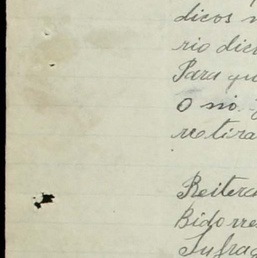 dicos
rio dic
Para qu
O no.
retira
Reiterc
Bidorre
Sufrag